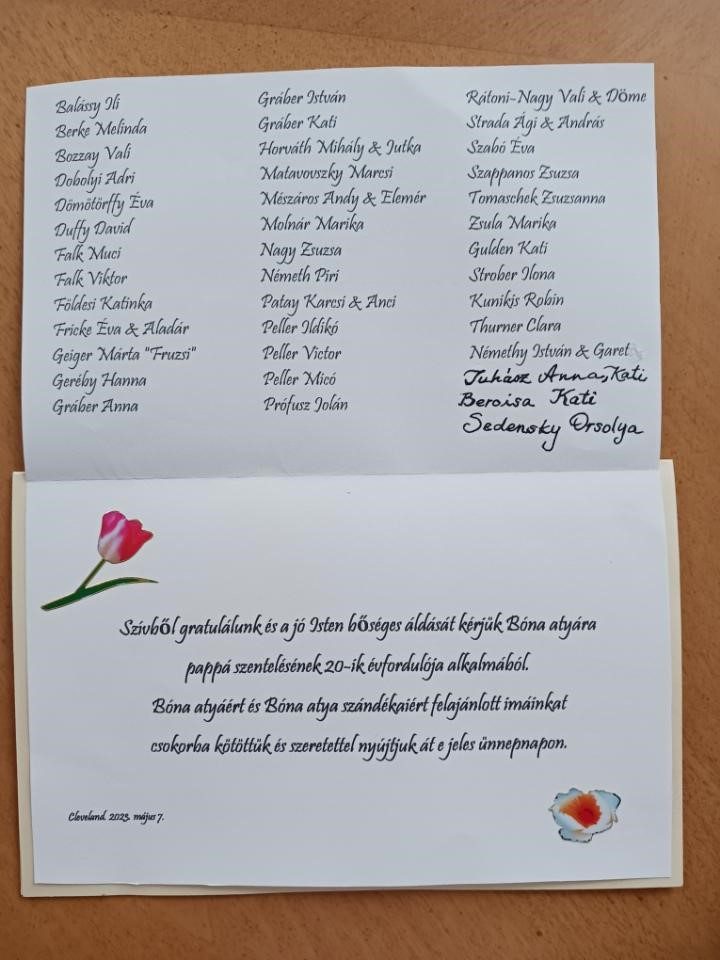 Balássy Ili
Berke Melinda
Bozzay Vali
Dobolyi Adri
Dömötörffy Éva
Duffy David
Falk Muci
Falk Viktor
Földesi Katinka
Fricke Éva & Aladár
Geiger Márta "Fruzsi"
Geréby Hanna
Gráber Anna
Gráber István
Gráber Kati
Horváth Mihály & Jutka
Matavovszky Marcsi
Mészáros Andy & Elemér
Molnár Marika
Nagy Zsuzsa
Németh Piri
Patay Karcsi & Anci
Peller Ildikó
Peller Victor
Peller Micó
Prófusz Jolán
Rátoni-Nagy Vali & Döme
Strada Ági & András
Szabó Éva
Szappanos Zsuzsa
Tomaschek Zsuzsanna
Zsula Marika
Gulden Kati
Strober Ilona
Kunikis Robin
Thurner Clara
Némethy István & Garet
Juhász Anna, Kati
Beroisa Kati
Sedensky Orsolya
Szívből gratulálunk és a jó Isten bőséges áldását kérjük Bóna atyára
pappá szentelésének 20-ik évfordulója alkalmából.
Bóna atyáért és Bóna atya szándékaiért felajánlott imáinkat
csokorba kötöttük és szeretettel nyújtjuk át e jeles ünnepnapon.
Cleveland. 2023. május 7.